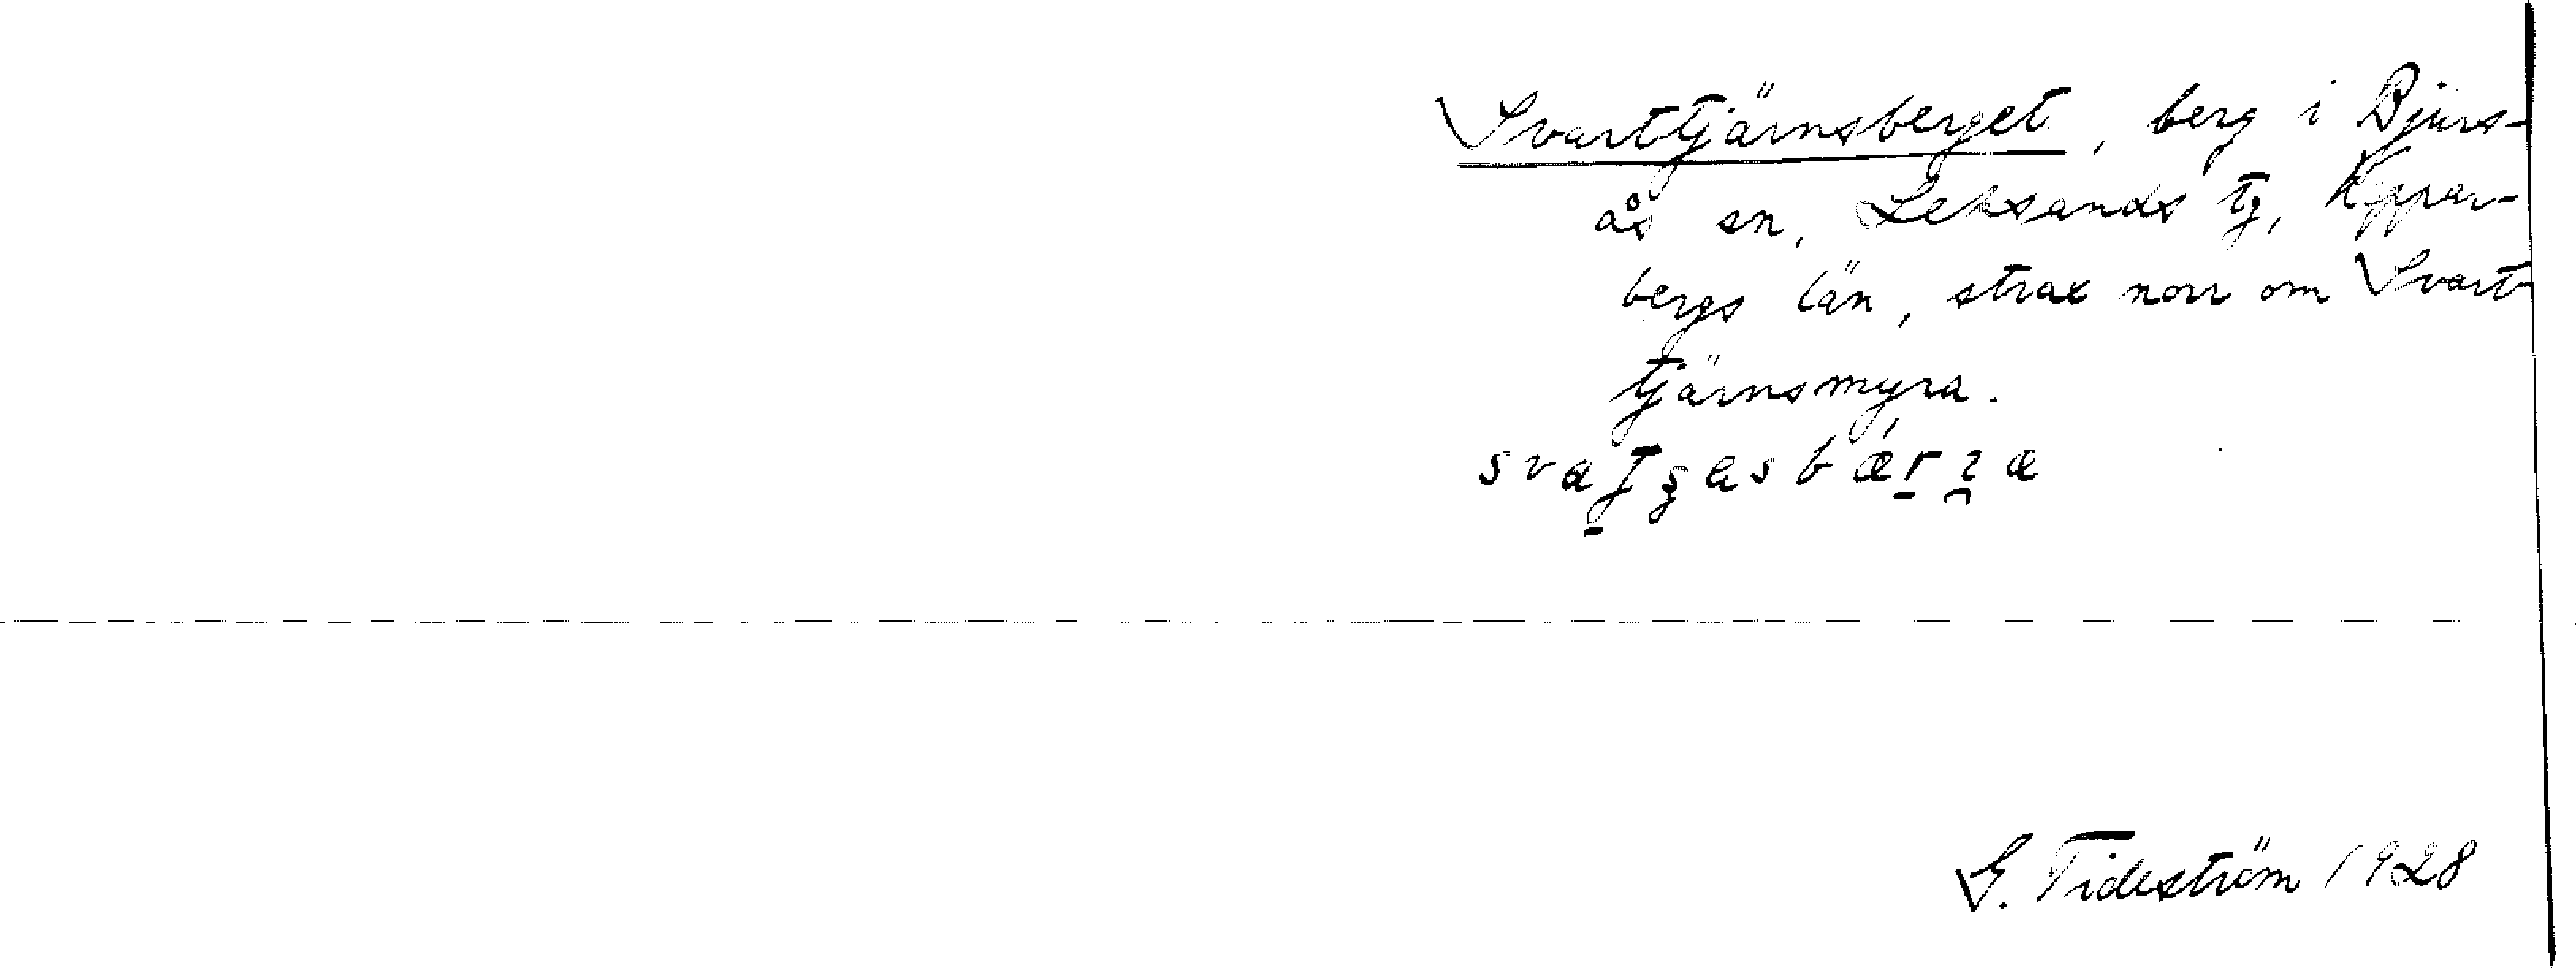 Svarttjärnsberget, berg i Bjurs-
ås sn, Leksands tg, Koppar-
bergs län, strax norr om Svart
tjärnsmyra.
G. Tideström 1928